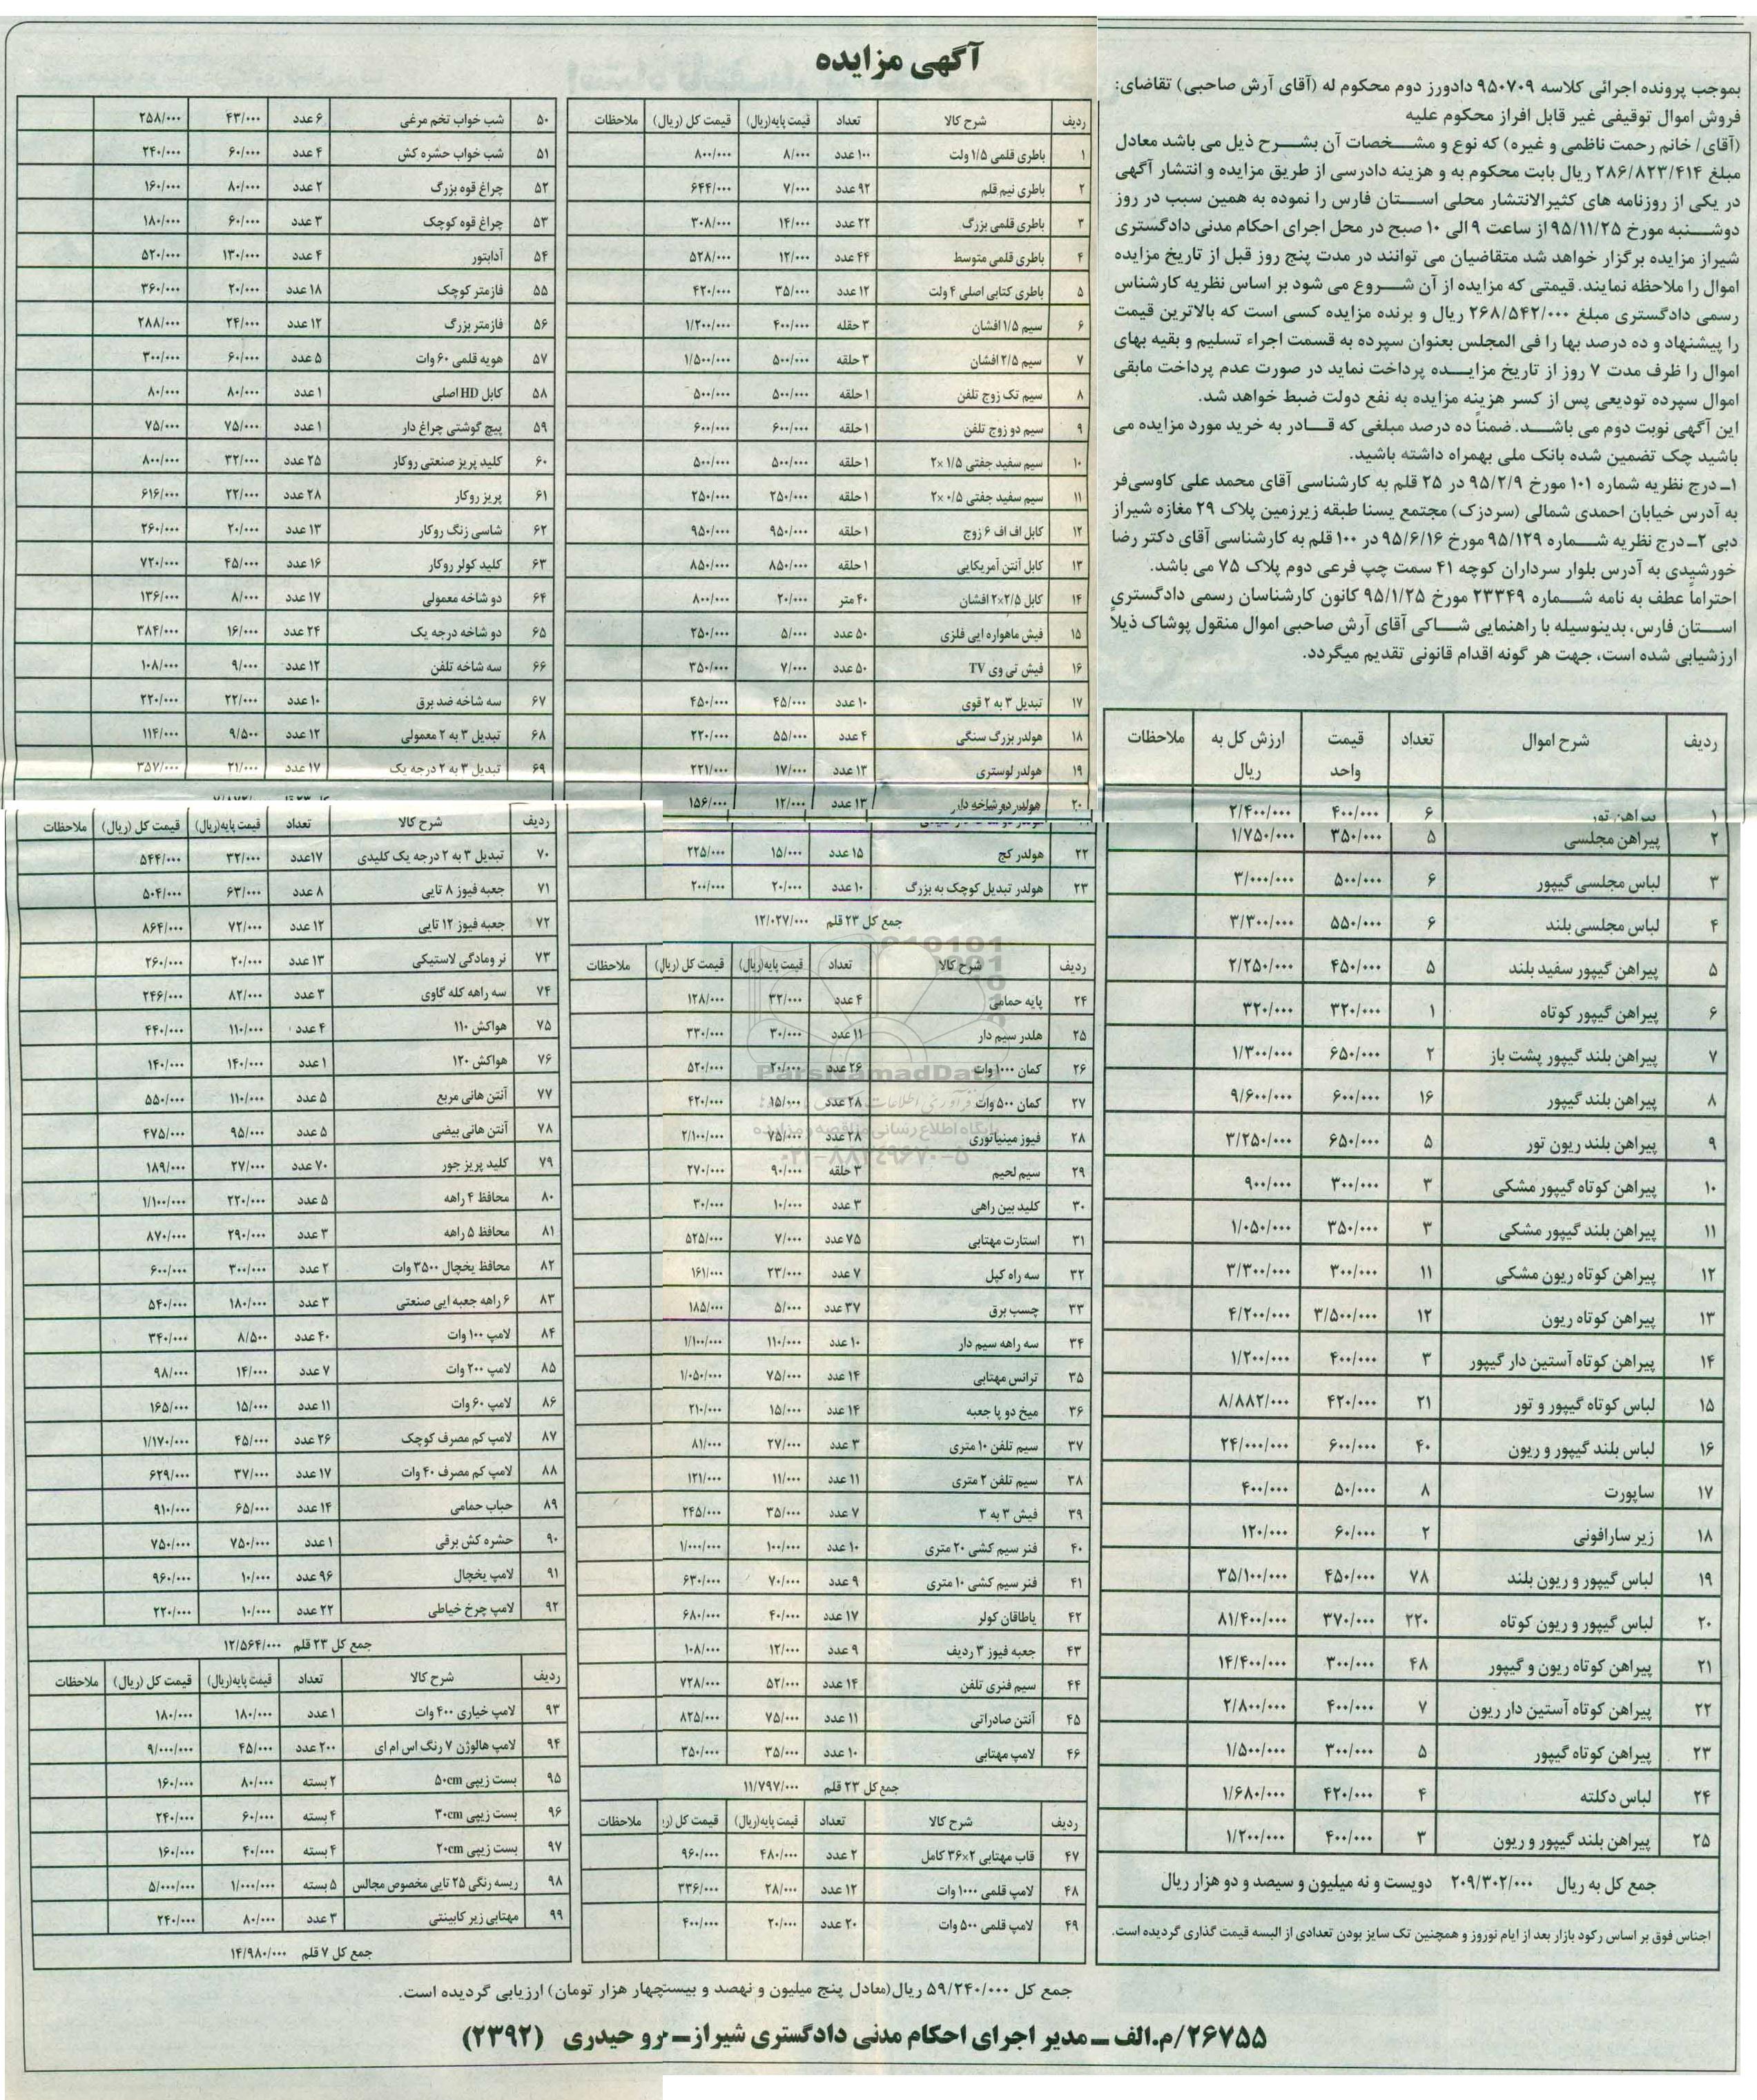 آگهی مزایده
بموجب پرونده اجرائی کلاسه ۹۵۰۷۰۹ دادورز دوم محکوم له (آقای آرش صاحبی) تقاضای:
فروش اموال توقیفی غیر قابل افراز محکوم علیه
(آقای/ خانم رحمت ناظمی و غیره) که نوع و مشخصات آن بشرح ذیل می باشد معادل
مبلغ ۲۸۶/۸۲۳/۴۱۴ ریال بابت محکوم به و هزینه دادرسی از طریق مزایده و انتشار آگهی
در یکی از روزنامه های کثیرالانتشار محلی استان فارس را نموده به همین سبب در روز
دوشنبه مورخ ۹۵/۱۱/۲۵ از ساعت ۹ الی ۱۰ صبح در محل اجرای احکام مدنی دادگستری
شیراز مزایده برگزار خواهد شد متقاضیان می توانند در مدت پنج روز قبل از تاریخ مزایده
اموال را ملاحظه نمایند. قیمتی که مزایده از آن شروع می شود بر اساس نظریه کارشناس
رسمی دادگستری مبلغ ۲۶۸/۵۴۲/۰۰۰ ریال و برنده مزایده کسی است که بالاترین قیمت
را پیشنهاد و ده درصد بها را فی المجلس بعنوان سپرده به قسمت اجراء تسلیم و بقیه بهای
اموال را ظرف مدت ۷ روز از تاریخ مزایده پرداخت نماید در صورت عدم پرداخت مابقی
اموال سپرده تودیعی پس از کسر هزینه مزایده به نفع دولت ضبط خواهد شد.
این آگهی نوبت دوم می باشد. ضمناً ده درصد مبلغی که قادر به خرید مورد مزایده می
باشید چک تضمین شده بانک ملی بهمراه داشته باشید.
۱ـ درج نظریه شماره ۱۰۱ مورخ ۹۵/۲/۹ در ۲۵ قلم به کارشناسی آقای محمد علی کاوسی‌فر
به آدرس خیابان احمدی شمالی (سردزک) مجتمع یسنا طبقه زیرزمین پلاک ۲۹ مغازه شیراز
دبی ۲ـ درج نظریه شماره ۹۵/۱۲۹ مورخ ۹۵/۶/۱۶ در ۱۰۰ قلم به کارشناسی آقای دکتر رضا
خورشیدی به آدرس بلوار سرداران کوچه ۴۱ سمت چپ فرعی دوم پلاک ۷۵ می باشد.
احتراماً عطف به نامه شماره ۲۳۳۴۹ مورخ ۹۵/۱/۲۵ کانون کارشناسان رسمی دادگستری
استان فارس، بدینوسیله با راهنمایی شاکی آقای آرش صاحبی اموال منقول پوشاک ذیلاً
ارزشیابی شده است، جهت هر گونه اقدام قانونی تقدیم میگردد.
ردیف شرح اموال تعداد قیمت واحد ارزش کل به ریال ملاحظات
۱ پیراهن تور ۶ ۴۰۰/۰۰۰ ۲/۴۰۰/۰۰۰
۲ پیراهن مجلسی ۵ ۳۵۰/۰۰۰ ۱/۷۵۰/۰۰۰
۳ لباس مجلسی گیپور ۶ ۵۰۰/۰۰۰ ۳/۰۰۰/۰۰۰
۴ لباس مجلسی بلند ۶ ۵۵۰/۰۰۰ ۳/۳۰۰/۰۰۰
۵ پیراهن گیپور سفید بلند ۵ ۴۵۰/۰۰۰ ۲/۲۵۰/۰۰۰
۶ پیراهن گیپور کوتاه ۱ ۳۲۰/۰۰۰ ۳۲۰/۰۰۰
۷ پیراهن بلند گیپور پشت باز ۲ ۶۵۰/۰۰۰ ۱/۳۰۰/۰۰۰
۸ پیراهن بلند گیپور ۱۶ ۶۰۰/۰۰۰ ۹/۶۰۰/۰۰۰
۹ پیراهن بلند ریون تور ۵ ۶۵۰/۰۰۰ ۳/۲۵۰/۰۰۰
۱۰ پیراهن کوتاه گیپور مشکی ۳ ۳۰۰/۰۰۰ ۹۰۰/۰۰۰
۱۱ پیراهن بلند گیپور مشکی ۳ ۳۵۰/۰۰۰ ۱/۰۵۰/۰۰۰
۱۲ پیراهن کوتاه ریون مشکی ۱۱ ۳۰۰/۰۰۰ ۳/۳۰۰/۰۰۰
۱۳ پیراهن کوتاه ریون ۱۲ ۳/۵۰۰/۰۰۰ ۴/۲۰۰/۰۰۰
۱۴ پیراهن کوتاه آستین دار گیپور ۳ ۴۰۰/۰۰۰ ۱/۲۰۰/۰۰۰
۱۵ لباس کوتاه گیپور و تور ۲۱ ۴۲۰/۰۰۰ ۸/۸۸۲/۰۰۰
۱۶ لباس بلند گیپور و ریون ۴۰ ۶۰۰/۰۰۰ ۲۴/۰۰۰/۰۰۰
۱۷ ساپورت ۸ ۵۰/۰۰۰ ۴۰۰/۰۰۰
۱۸ زیر سارافونی ۲ ۶۰/۰۰۰ ۱۲۰/۰۰۰
۱۹ لباس گیپور و ریون بلند ۷۸ ۴۵۰/۰۰۰ ۳۵/۱۰۰/۰۰۰
۲۰ لباس گیپور و ریون کوتاه ۲۲۰ ۳۷۰/۰۰۰ ۸۱/۴۰۰/۰۰۰
۲۱ پیراهن کوتاه ریون و گیپور ۴۸ ۳۰۰/۰۰۰ ۱۴/۴۰۰/۰۰۰
۲۲ پیراهن کوتاه آستین دار ریون ۷ ۴۰۰/۰۰۰ ۲/۸۰۰/۰۰۰
۲۳ پیراهن کوتاه گیپور ۵ ۳۰۰/۰۰۰ ۱/۵۰۰/۰۰۰
۲۴ لباس دکلته ۴ ۴۲۰/۰۰۰ ۱/۶۸۰/۰۰۰
۲۵ پیراهن بلند گیپور و ریون ۳ ۴۰۰/۰۰۰ ۱/۲۰۰/۰۰۰
جمع کل به ریال ۲۰۹/۳۰۲/۰۰۰ دویست و نه میلیون و سیصد و دو هزار ریال
اجناس فوق بر اساس رکود بازار بعد از ایام نوروز و همچنین تک سایز بودن تعدادی از البسه قیمت گذاری گردیده است.
ردیف شرح کالا تعداد قیمت پایه(ریال) قیمت کل (ریال) ملاحظات
۱ باطری قلمی ۱/۵ ولت ۱۰۰ عدد ۸/۰۰۰ ۸۰۰/۰۰۰
۲ باطری نیم قلم ۹۲ عدد ۷/۰۰۰ ۶۴۴/۰۰۰
۳ باطری قلمی بزرگ ۲۲ عدد ۱۴/۰۰۰ ۳۰۸/۰۰۰
۴ باطری قلمی متوسط ۴۴ عدد ۱۲/۰۰۰ ۵۲۸/۰۰۰
۵ باطری کتابی اصلی ۴ ولت ۱۲ عدد ۳۵/۰۰۰ ۴۲۰/۰۰۰
۶ سیم ۱/۵ افشان ۳ حلقه ۴۰۰/۰۰۰ ۱/۲۰۰/۰۰۰
۷ سیم ۲/۵ افشان ۳ حلقه ۵۰۰/۰۰۰ ۱/۵۰۰/۰۰۰
۸ سیم تک زوج تلفن ۱ حلقه ۵۰۰/۰۰۰ ۵۰۰/۰۰۰
۹ سیم دو زوج تلفن ۱ حلقه ۶۰۰/۰۰۰ ۶۰۰/۰۰۰
۱۰ سیم سفید جفتی ۱/۵ ×۲ ۱ حلقه ۵۰۰/۰۰۰ ۵۰۰/۰۰۰
۱۱ سیم سفید جفتی ۰/۵ ×۲ ۱ حلقه ۲۵۰/۰۰۰ ۲۵۰/۰۰۰
۱۲ کابل اف اف ۶ زوج ۱ حلقه ۹۵۰/۰۰۰ ۹۵۰/۰۰۰
۱۳ کابل آنتن آمریکایی ۱ حلقه ۸۵۰/۰۰۰ ۸۵۰/۰۰۰
۱۴ کابل ۲/۵×۲ افشان ۴۰ متر ۲۰/۰۰۰ ۸۰۰/۰۰۰
۱۵ فیش ماهواره ایی فلزی ۵۰ عدد ۵/۰۰۰ ۲۵۰/۰۰۰
۱۶ فیش تی وی TV ۵۰ عدد ۷/۰۰۰ ۳۵۰/۰۰۰
۱۷ تبدیل ۳ به ۲ قوی ۱۰ عدد ۴۵/۰۰۰ ۴۵۰/۰۰۰
۱۸ هولدر بزرگ سنگی ۴ عدد ۵۵/۰۰۰ ۲۲۰/۰۰۰
۱۹ هولدر لوستری ۱۳ عدد ۱۷/۰۰۰ ۲۲۱/۰۰۰
۲۰ هولدر دو شاخه دار ۱۳ عدد ۱۲/۰۰۰ ۱۵۶/۰۰۰
۲۲ هولدر کج ۱۵ عدد ۱۵/۰۰۰ ۲۲۵/۰۰۰
۲۳ هولدر تبدیل کوچک به بزرگ ۱۰ عدد ۲۰/۰۰۰ ۲۰۰/۰۰۰
جمع کل ۲۳ قلم ۱۲/۰۲۷/۰۰۰
ردیف شرح کالا تعداد قیمت پایه(ریال) قیمت کل (ریال) ملاحظات
۲۴ پایه حمامی ۴ عدد ۳۲/۰۰۰ ۱۲۸/۰۰۰
۲۵ هلدر سیم دار ۱۱ عدد ۳۰/۰۰۰ ۳۳۰/۰۰۰
۲۶ کمان ۱۰۰۰ وات ۲۶ عدد ۲۰/۰۰۰ ۵۲۰/۰۰۰
۲۷ کمان ۵۰۰ وات ۲۸ عدد ۱۵/۰۰۰ ۴۲۰/۰۰۰
۲۸ فیوز مینیاتوری ۲۸ عدد ۷۵/۰۰۰ ۲/۱۰۰/۰۰۰
۲۹ سیم لحیم ۳ حلقه ۹۰/۰۰۰ ۲۷۰/۰۰۰
۳۰ کلید بین راهی ۳ عدد ۱۰/۰۰۰ ۳۰/۰۰۰
۳۱ استارت مهتابی ۷۵ عدد ۷/۰۰۰ ۵۲۵/۰۰۰
۳۲ سه راه کپل ۷ عدد ۲۳/۰۰۰ ۱۶۱/۰۰۰
۳۳ چسب برق ۳۷ عدد ۵/۰۰۰ ۱۸۵/۰۰۰
۳۴ سه راهه سیم دار ۱۰ عدد ۱۱۰/۰۰۰ ۱/۱۰۰/۰۰۰
۳۵ ترانس مهتابی ۱۴ عدد ۷۵/۰۰۰ ۱/۰۵۰/۰۰۰
۳۶ میخ دو پا جعبه ۱۴ عدد ۱۵/۰۰۰ ۲۱۰/۰۰۰
۳۷ سیم تلفن ۱۰ متری ۳ عدد ۲۷/۰۰۰ ۸۱/۰۰۰
۳۸ سیم تلفن ۲ متری ۱۱ عدد ۱۱/۰۰۰ ۱۲۱/۰۰۰
۳۹ فیش ۳ به ۳ ۷ عدد ۳۵/۰۰۰ ۲۴۵/۰۰۰
۴۰ فنر سیم کشی ۲۰ متری ۱۰ عدد ۱۰۰/۰۰۰ ۱/۰۰۰/۰۰۰
۴۱ فنر سیم کشی ۱۰ متری ۹ عدد ۷۰/۰۰۰ ۶۳۰/۰۰۰
۴۲ یاطاقان کولر ۱۷ عدد ۴۰/۰۰۰ ۶۸۰/۰۰۰
۴۳ جعبه فیوز ۳ ردیف ۹ عدد ۱۲/۰۰۰ ۱۰۸/۰۰۰
۴۴ سیم فنری تلفن ۱۴ عدد ۵۲/۰۰۰ ۷۲۸/۰۰۰
۴۵ آنتن صادراتی ۱۱ عدد ۷۵/۰۰۰ ۸۲۵/۰۰۰
۴۶ لامپ مهتابی ۱۰ عدد ۳۵/۰۰۰ ۳۵۰/۰۰۰
جمع کل ۲۳ قلم ۱۱/۷۹۷/۰۰۰
ردیف شرح کالا تعداد قیمت پایه(ریال) قیمت کل (ری ملاحظات
۴۷ قاب مهتابی ۲×۳۶ کامل ۲ عدد ۴۸۰/۰۰۰ ۹۶۰/۰۰۰
۴۸ لامپ قلمی ۱۰۰۰ وات ۱۲ عدد ۲۸/۰۰۰ ۳۳۶/۰۰۰
۴۹ لامپ قلمی ۵۰۰ وات ۲۰ عدد ۲۰/۰۰۰ ۴۰۰/۰۰۰
۵۰ شب خواب تخم مرغی ۶ عدد ۴۳/۰۰۰ ۲۵۸/۰۰۰
۵۱ شب خواب حشره کش ۴ عدد ۶۰/۰۰۰ ۲۴۰/۰۰۰
۵۲ چراغ قوه بزرگ ۲ عدد ۸۰/۰۰۰ ۱۶۰/۰۰۰
۵۳ چراغ قوه کوچک ۳ عدد ۶۰/۰۰۰ ۱۸۰/۰۰۰
۵۴ آداپتور ۴ عدد ۱۳۰/۰۰۰ ۵۲۰/۰۰۰
۵۵ فازمتر کوچک ۱۸ عدد ۲۰/۰۰۰ ۳۶۰/۰۰۰
۵۶ فازمتر بزرگ ۱۲ عدد ۲۴/۰۰۰ ۲۸۸/۰۰۰
۵۷ هویه قلمی ۶۰ وات ۵ عدد ۶۰/۰۰۰ ۳۰۰/۰۰۰
۵۸ کابل HD اصلی ۱ عدد ۸۰/۰۰۰ ۸۰/۰۰۰
۵۹ پیچ گوشتی چراغ دار ۱ عدد ۷۵/۰۰۰ ۷۵/۰۰۰
۶۰ کلید پریز صنعتی روکار ۲۵ عدد ۳۲/۰۰۰ ۸۰۰/۰۰۰
۶۱ پریز روکار ۲۸ عدد ۲۲/۰۰۰ ۶۱۶/۰۰۰
۶۲ شاسی زنگ روکار ۱۳ عدد ۲۰/۰۰۰ ۲۶۰/۰۰۰
۶۳ کلید کولر روکار ۱۶ عدد ۴۵/۰۰۰ ۷۲۰/۰۰۰
۶۴ دو شاخه معمولی ۱۷ عدد ۸/۰۰۰ ۱۳۶/۰۰۰
۶۵ دو شاخه درجه یک ۲۴ عدد ۱۶/۰۰۰ ۳۸۴/۰۰۰
۶۶ سه شاخه تلفن ۱۲ عدد ۹/۰۰۰ ۱۰۸/۰۰۰
۶۷ سه شاخه ضد برق ۱۰ عدد ۲۲/۰۰۰ ۲۲۰/۰۰۰
۶۸ تبدیل ۳ به ۲ معمولی ۱۲ عدد ۹/۵۰۰ ۱۱۴/۰۰۰
۶۹ تبدیل ۳ به ۲ درجه یک ۱۷ عدد ۲۱/۰۰۰ ۳۵۷/۰۰۰
ردیف شرح کالا تعداد قیمت پایه(ریال) قیمت کل (ریال) ملاحظات
۷۰ تبدیل ۳ به ۲ درجه یک کلیدی ۱۷ عدد ۳۲/۰۰۰ ۵۴۴/۰۰۰
۷۱ جعبه فیوز ۸ تایی ۸ عدد ۶۳/۰۰۰ ۵۰۴/۰۰۰
۷۲ جعبه فیوز ۱۲ تایی ۱۲ عدد ۷۲/۰۰۰ ۸۶۴/۰۰۰
۷۳ نر ومادگی لاستیکی ۱۳ عدد ۲۰/۰۰۰ ۲۶۰/۰۰۰
۷۴ سه راهه کله گاوی ۳ عدد ۸۲/۰۰۰ ۲۴۶/۰۰۰
۷۵ هواکش ۱۱۰ ۴ عدد ۱۱۰/۰۰۰ ۴۴۰/۰۰۰
۷۶ هواکش ۱۲۰ ۱ عدد ۱۴۰/۰۰۰ ۱۴۰/۰۰۰
۷۷ آنتن هانی مربع ۵ عدد ۱۱۰/۰۰۰ ۵۵۰/۰۰۰
۷۸ آنتن هانی بیضی ۵ عدد ۹۵/۰۰۰ ۴۷۵/۰۰۰
۷۹ کلید پریز جور ۷۰ عدد ۲۷/۰۰۰ ۱۸۹/۰۰۰
۸۰ محافظ ۴ راهه ۵ عدد ۲۲۰/۰۰۰ ۱/۱۰۰/۰۰۰
۸۱ محافظ ۵ راهه ۳ عدد ۲۹۰/۰۰۰ ۸۷۰/۰۰۰
۸۲ محافظ یخچال ۳۵۰۰ وات ۲ عدد ۳۰۰/۰۰۰ ۶۰۰/۰۰۰
۸۳ ۶ راهه جعبه ایی صنعتی ۳ عدد ۱۸۰/۰۰۰ ۵۴۰/۰۰۰
۸۴ لامپ ۱۰۰ وات ۴۰ عدد ۸/۵۰۰ ۳۴۰/۰۰۰
۸۵ لامپ ۲۰۰ وات ۷ عدد ۱۴/۰۰۰ ۹۸/۰۰۰
۸۶ لامپ ۶۰ وات ۱۱ عدد ۱۵/۰۰۰ ۱۶۵/۰۰۰
۸۷ لامپ کم مصرف کوچک ۲۶ عدد ۴۵/۰۰۰ ۱/۱۷۰/۰۰۰
۸۸ لامپ کم مصرف ۴۰ وات ۱۷ عدد ۳۷/۰۰۰ ۶۲۹/۰۰۰
۸۹ حباب حمامی ۱۴ عدد ۶۵/۰۰۰ ۹۱۰/۰۰۰
۹۰ حشره کش برقی ۱ عدد ۷۵۰/۰۰۰ ۷۵۰/۰۰۰
۹۱ لامپ یخچال ۹۶ عدد ۱۰/۰۰۰ ۹۶۰/۰۰۰
۹۲ لامپ چرخ خیاطی ۲۲ عدد ۱۰/۰۰۰ ۲۲۰/۰۰۰
جمع کل ۲۳ قلم ۱۲/۵۶۴/۰۰۰
ردیف شرح کالا تعداد قیمت پایه(ریال) قیمت کل (ریال) ملاحظات
۹۳ لامپ خیاری ۴۰۰ وات ۱ عدد ۱۸۰/۰۰۰ ۱۸۰/۰۰۰
۹۴ لامپ هالوژن ۷ رنگ اس ام ای ۲۰۰ عدد ۴۵/۰۰۰ ۹/۰۰۰/۰۰۰
۹۵ بست زیپی ۵۰cm ۲ بسته ۸۰/۰۰۰ ۱۶۰/۰۰۰
۹۶ بست زیپی ۳۰cm ۴ بسته ۶۰/۰۰۰ ۲۴۰/۰۰۰
۹۷ بست زیپی ۲۰cm ۴ بسته ۴۰/۰۰۰ ۱۶۰/۰۰۰
۹۸ ریسه رنگی ۲۵ تایی مخصوص مجالس ۵ بسته ۱/۰۰۰/۰۰۰ ۵/۰۰۰/۰۰۰
۹۹ مهتابی زیر کابینتی ۳ عدد ۸۰/۰۰۰ ۲۴۰/۰۰۰
جمع کل ۷ قلم ۱۴/۹۸۰/۰۰۰
جمع کل ۵۹/۲۴۰/۰۰۰ ریال(معادل پنج میلیون و نهصد و بیست‌چهار هزار تومان) ارزیابی گردیده است.
۲۶۷۵۵/م.الف ـ مدیر اجرای احکام مدنی دادگستری شیراز ـ رو حیدری (۲۳۹۲)
ParsNamadData
پایگاه اطلاع رسانی مناقصه و مزایده
۰۲۱-۸۸۳۴۹۶۷۰-۵